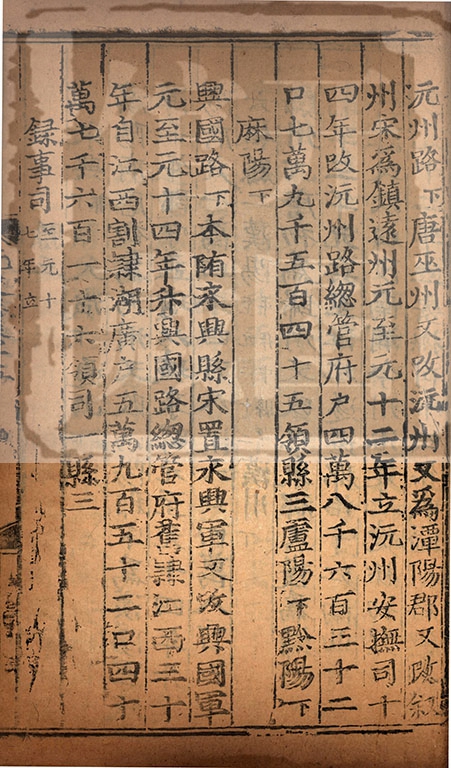 沅州路下唐巫州又改沅州又爲潭陽郡又改叙
州宋爲鎮遠州元至元十二年立沅州安撫司十
四年改沅州路緫管府户四萬八千六百三十二
口七萬九千五百四十五領縣三盧陽下黔陽下
麻陽下
興國路下本隋永興縣宋置永興軍又改興國軍
元至元十四年升興國路緫管府舊隷江西三十
年自江西割隷湖廣户五萬九百五十二口四十
萬七千六百一十六領司一縣三
録事司至元十
七年立